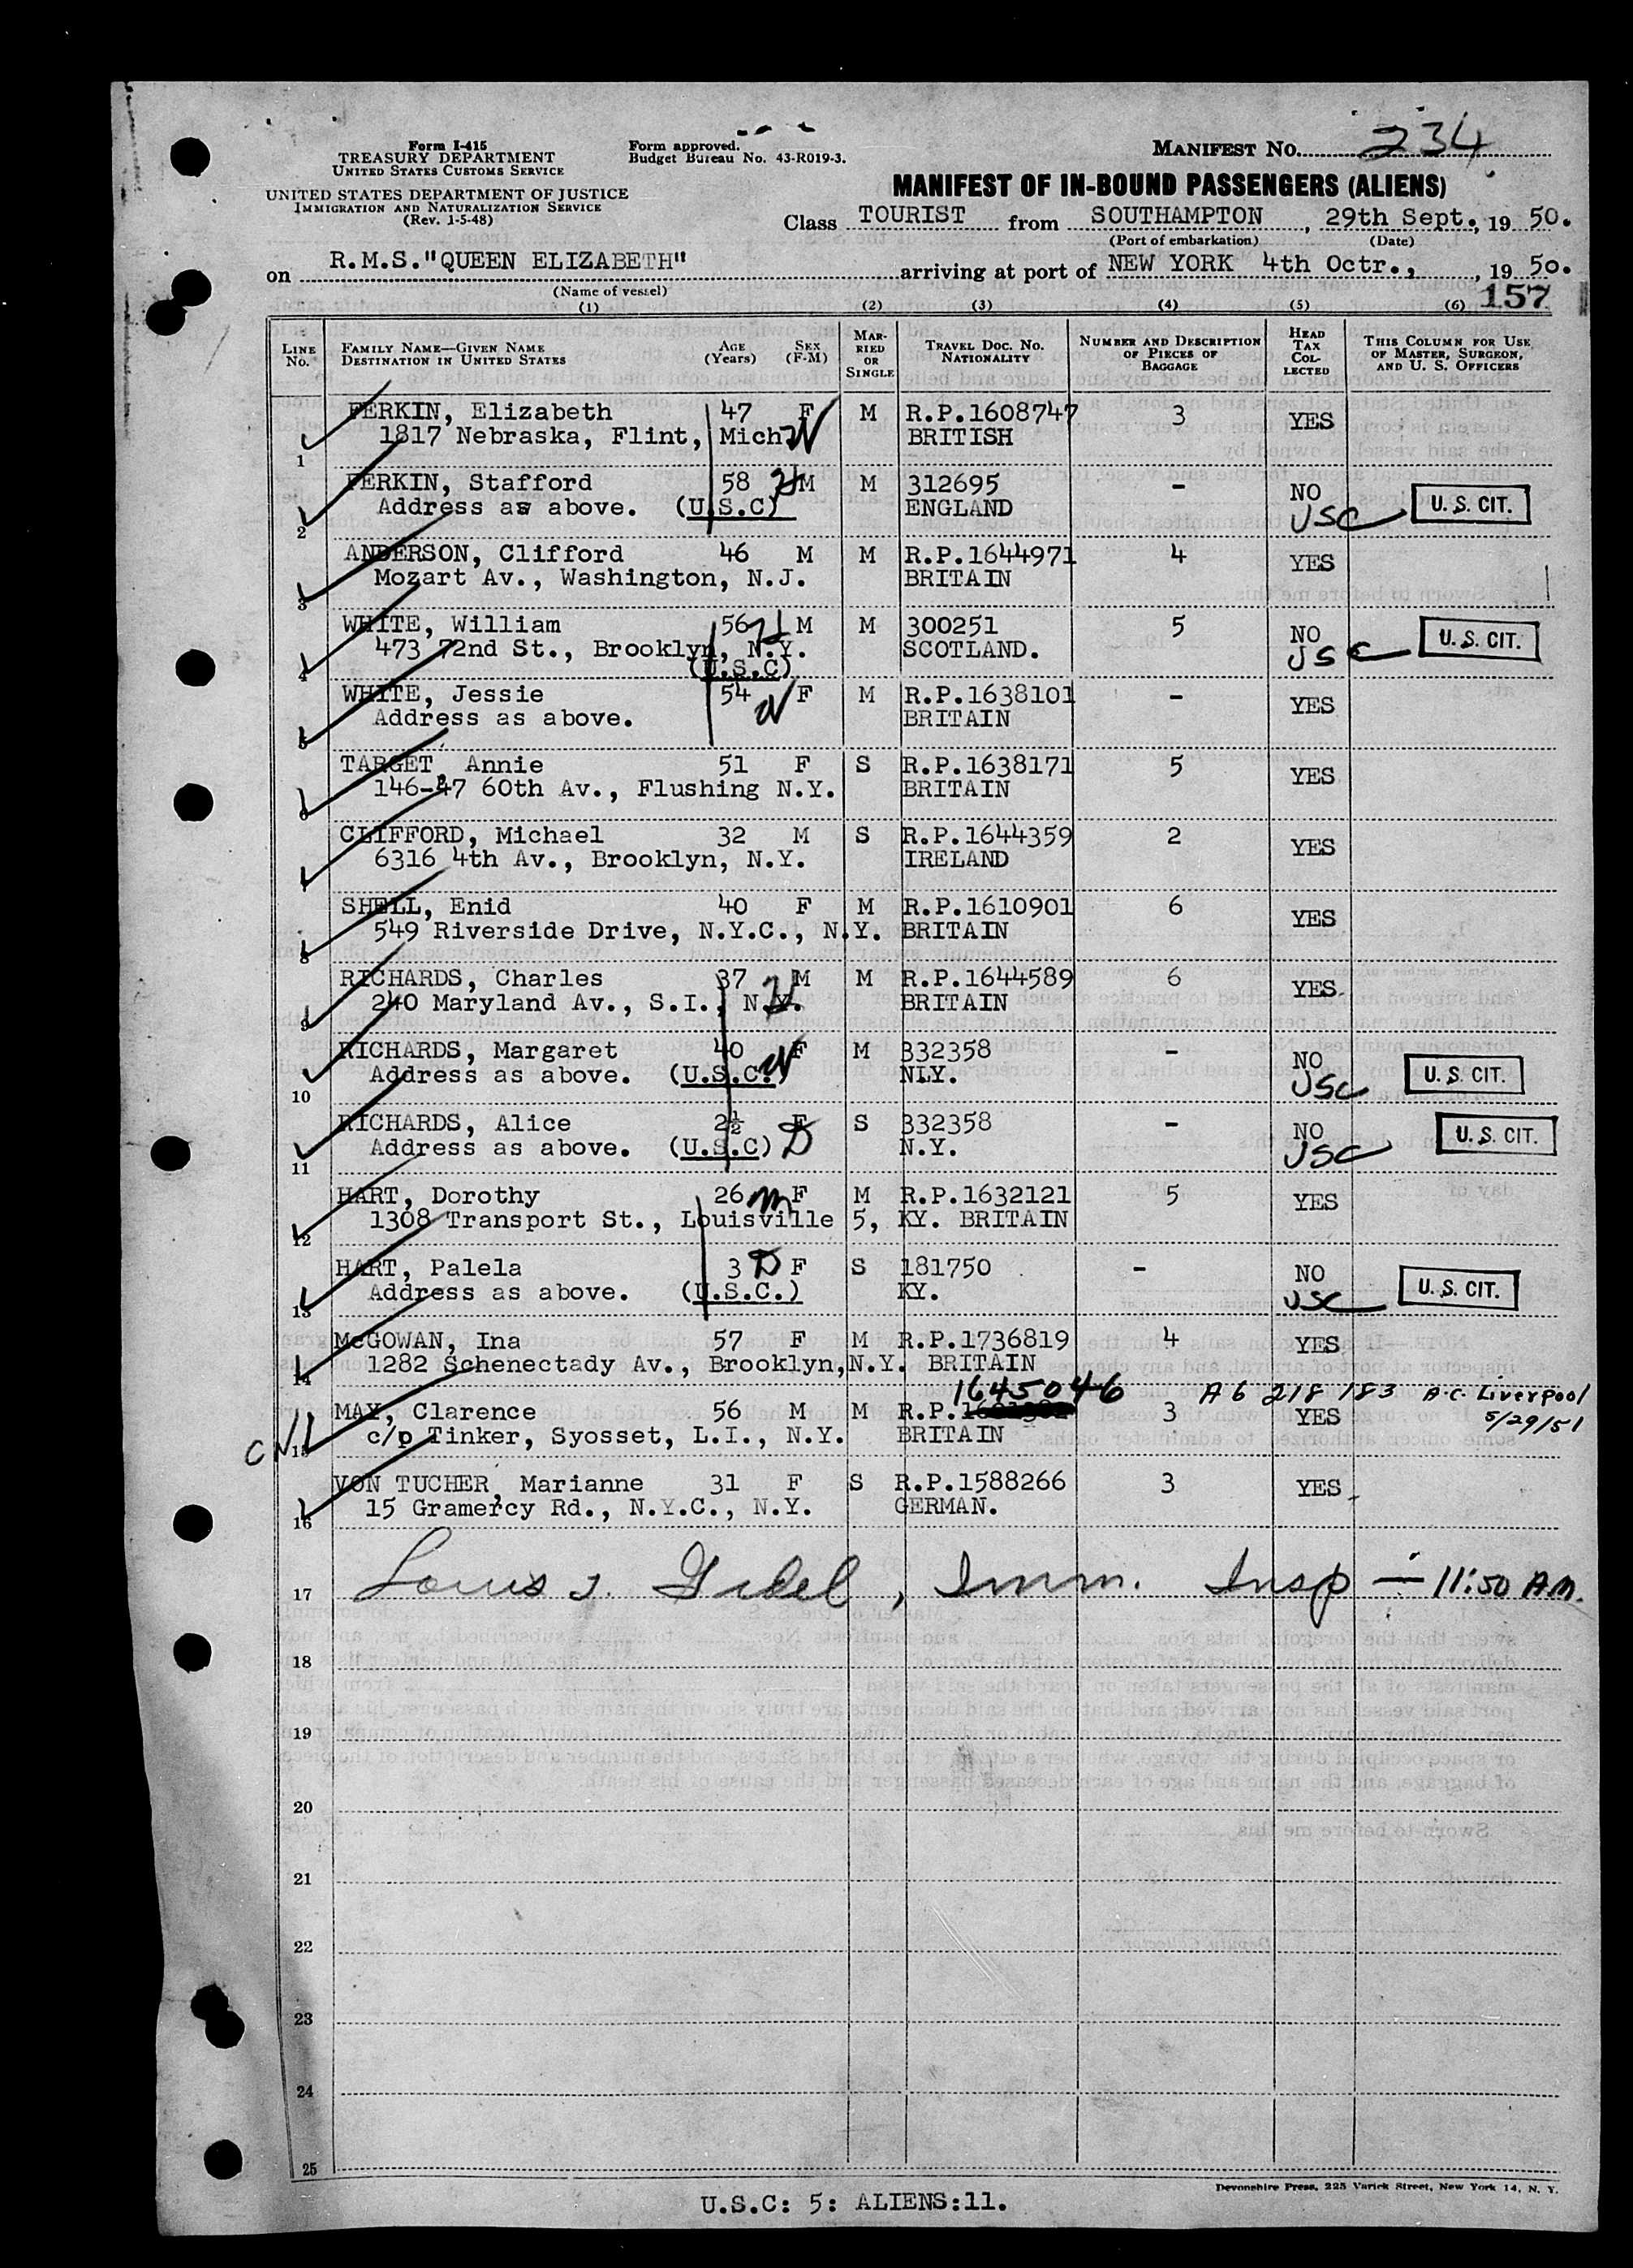 Form I-415
TREASURY DEPARTMENT
UNITED STATES CUSTOMS SERVICE
UNITED STATES DEPARTMENT OF JUSTICE
IMMIGRATION AND NATURALIZATION SERVICE
(Rev. 1-5-48)
Form approved.
Budget Bureau No. 43-R019-3.
MANIFEST NO. 234
MANIFEST OF IN-BOUND PASSENGERS (ALIENS)
Class TOURIST from SOUTHAMPTON, 29th Sept., 19 50.
(Port of embarkation) (Date)
on R.M.S."QUEEN ELIZABETH" arriving at port of NEW YORK 4th Octr., , 19 50.
(Name of vessel)
(1) (2) (3) (4) (5) (6) 157
LINE NO. FAMILY NAME—GIVEN NAME DESTINATION IN UNITED STATES AGE (Years) SEX (F-M) MARRIED OR SINGLE TRAVEL DOC. NO. NATIONALITY NUMBER AND DESCRIPTION OF PIECES OF BAGGAGE HEAD TAX COLLECTED THIS COLUMN FOR USE OF MASTER, SURGEON, AND U. S. OFFICERS
FERKIN, Elizabeth 47 F M R.P.1608747 3 YES
1 1817 Nebraska, Flint, Mich. W BRITISH
FERKIN, Stafford 58 H M M 312695 - NO U.S. CIT.
2 Address as above. (U.S.C) ENGLAND USC
ANDERSON, Clifford 46 M M R.P.1644971 4 YES
3 Mozart Av., Washington, N.J. BRITAIN
WHITE, William 56 H M M 300251 5 NO U.S. CIT.
4 473 72nd St., Brooklyn, N.Y. SCOTLAND. USC
(U.S.C)
WHITE, Jessie 54 W F M R.P.1638101 - YES
5 Address as above. BRITAIN
TARGET, Annie 51 F S R.P.1638171 5 YES
6 146-47 60th Av., Flushing N.Y. BRITAIN
CLIFFORD, Michael 32 M S R.P.1644359 2 YES
6316 4th Av., Brooklyn, N.Y. IRELAND
SHELL, Enid 40 F M R.P.1610901 6 YES
8 549 Riverside Drive, N.Y.C., N.Y. BRITAIN
RICHARDS, Charles 37 M M R.P.1644589 6 YES
9 240 Maryland Av., S.I., N.Y. H BRITAIN
RICHARDS, Margaret 40 F M 332358 - NO U.S. CIT.
10 Address as above. (U.S.C.) W NLY. USC
RICHARDS, Alice 2½ F S 332358 - NO U.S. CIT.
11 Address as above. (U.S.C) D N.Y. USC
HART, Dorothy 26 M F M R.P.1632121 5 YES
12 1308 Transport St., Louisville 5, KY. BRITAIN
HART, Palela 3 D F S 181750 - NO U.S. CIT.
13 Address as above. (U.S.C.) KY. USC
McGOWAN, Ina 57 F M R.P.1736819 4 YES
14 1282 Schenectady Av., Brooklyn, N.Y. BRITAIN
1645046 A6 218 183 A.C. Liverpool
MAY, Clarence 56 M M R.P. 3 YES 5/29/51
15 c/p Tinker, Syosset, L.I., N.Y. BRITAIN
VON TUCHER, Marianne 31 F S R.P.1588266 3 YES
16 15 Gramercy Rd., N.Y.C., N.Y. GERMAN.
17 Louis J. , Imm. Insp — 11:50 A.M.
18
19
20
21
22
23
24
25
Devonshire Press, 225 Varick Street, New York 14, N. Y.
U.S.C: 5: ALIENS:11.